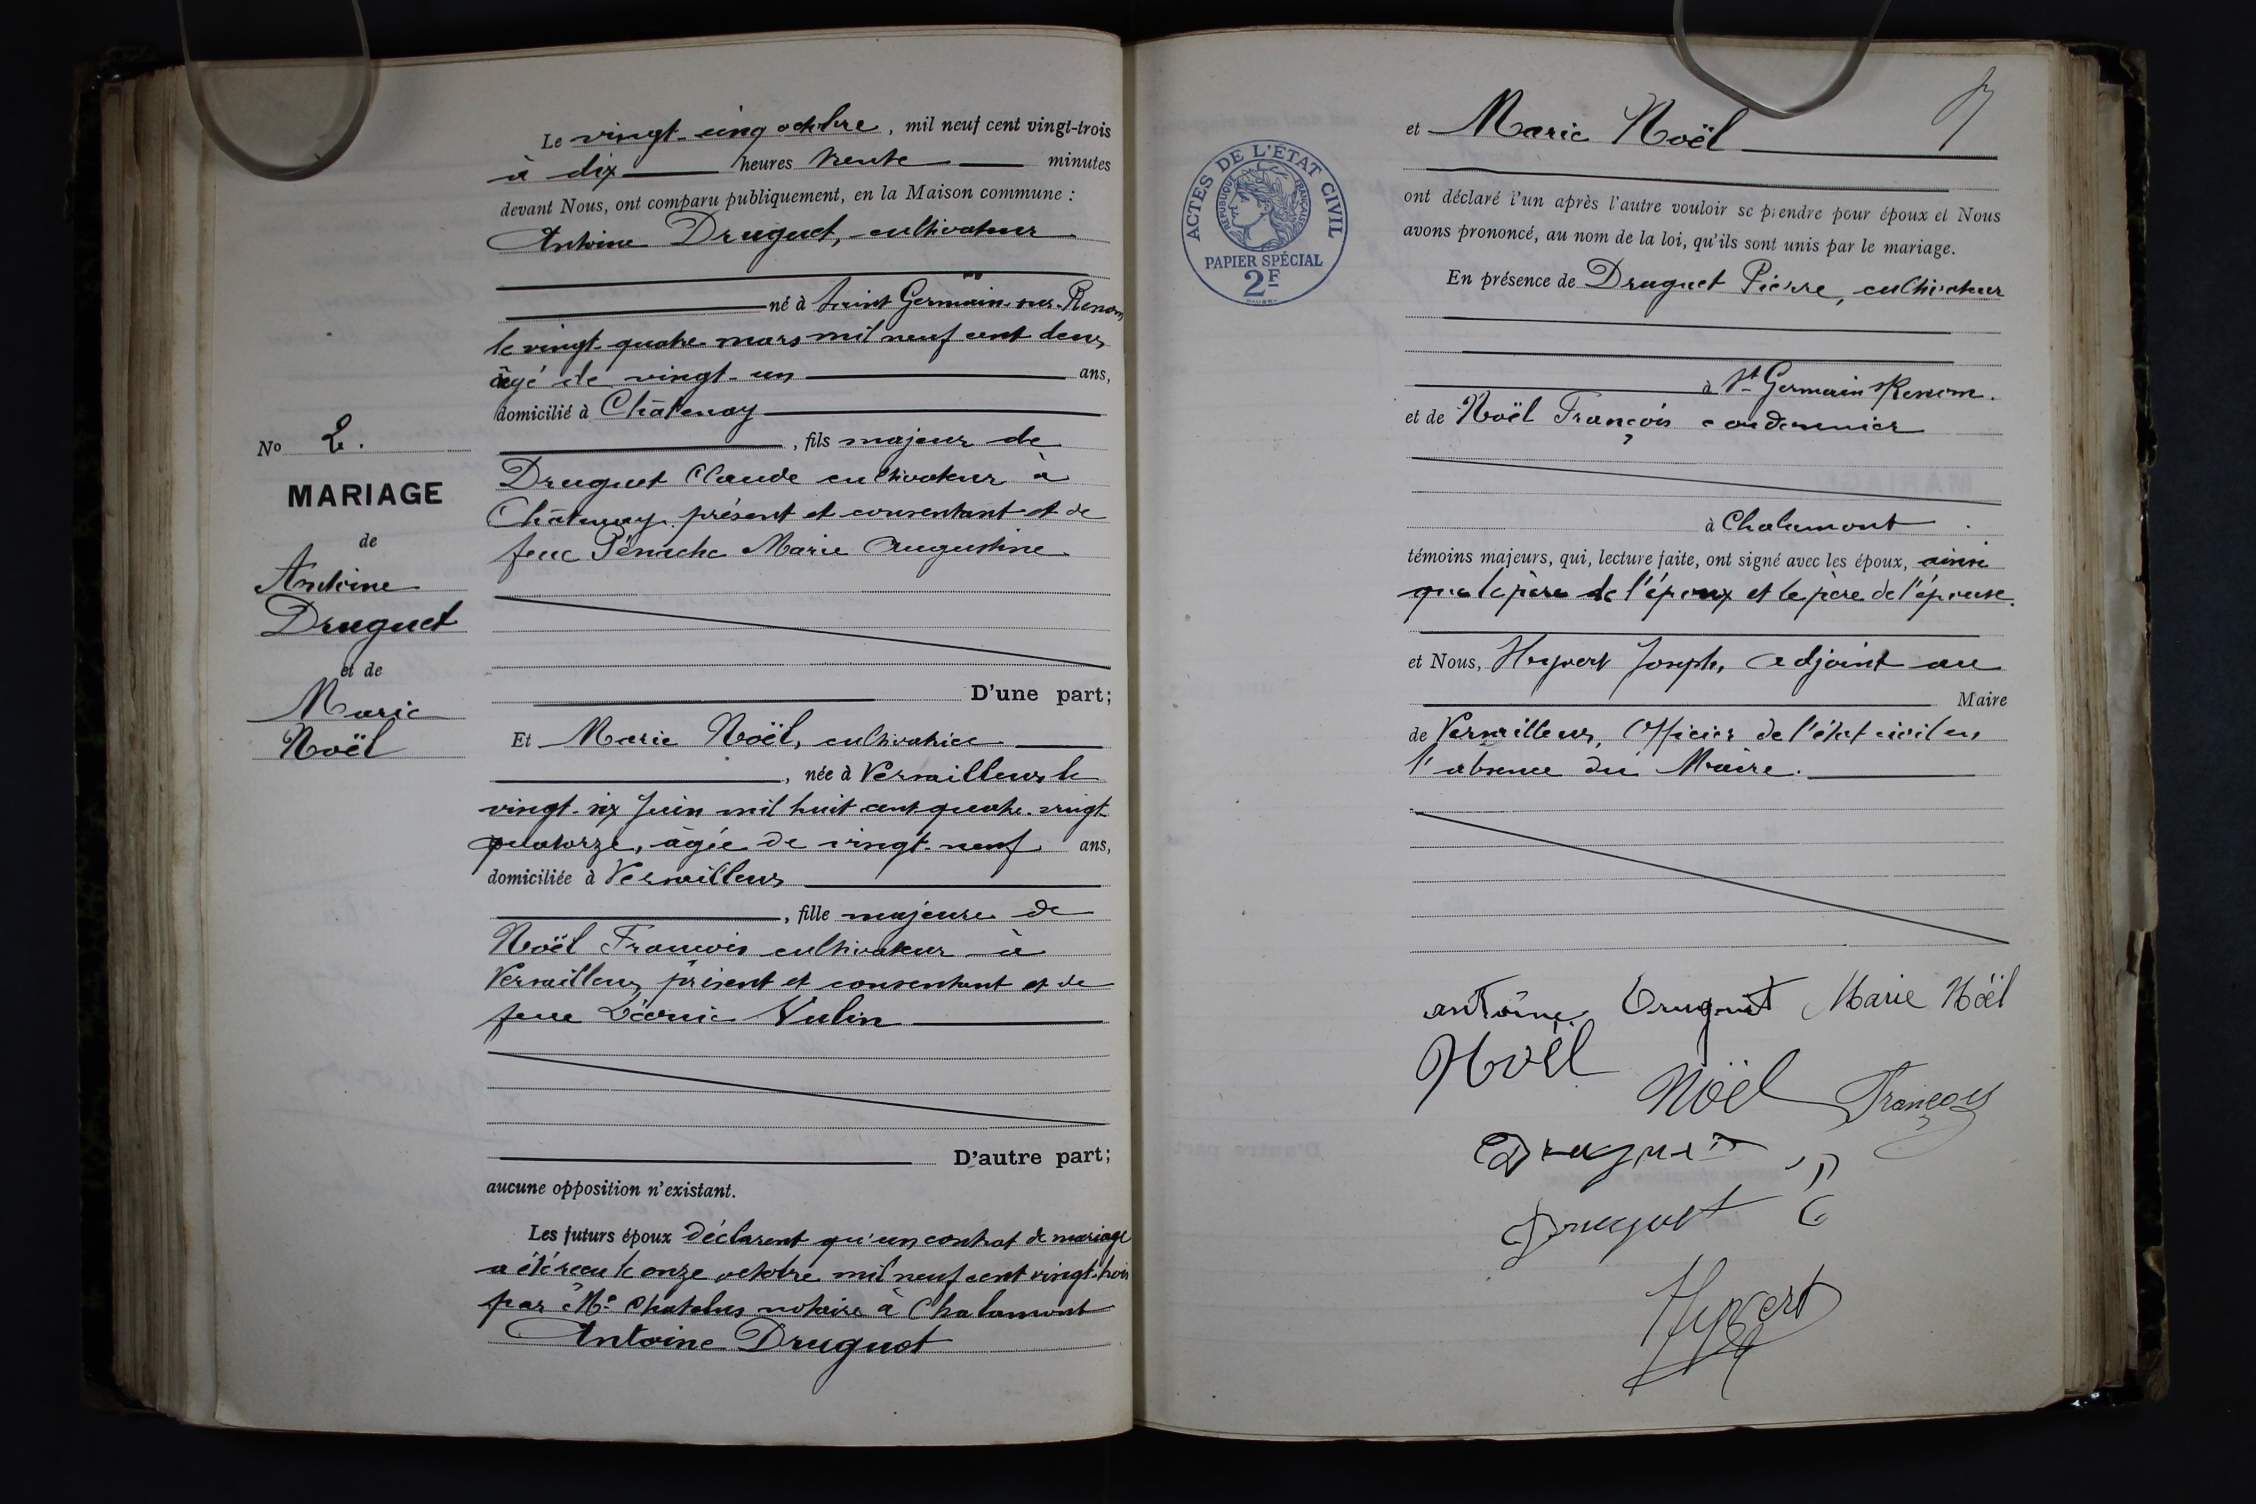 Le vingt-cinq octobre, mil neuf cent vingt-trois
à dix heures trente minutes
devant Nous, ont comparu publiquement, en la Maison commune :
Antoine Druguet, cultivateur
né à Saint Germain-sur-Renom
le vingt-quatre mars mil neuf cent deux
âgé de vingt-un ans,
domicilié à Châtenay
, fils majeur de
Druguet Claude cultivateur à
Châtenay présent et consentant et de
feue Marie Augustine
D'une part;
No 2.
MARIAGE
de
Antoine
Druguet
et de
Marie
Noël
Et Marie Noël, cultivatrice
, née à Versailleux le
vingt-six Juin mil huit cent quatre-vingt
quatorze, âgée de vingt-neuf ans,
domiciliée à Versailleux
, fille majeure de
Noël François cultivateur à
Versailleux présent et consentant et de
feue Vulin
D'autre part;
aucune opposition n'existant.
Les futurs époux déclarent qu'un contrat de mariage
a été reçu le onze octobre mil neuf cent vingt-trois
par Me Chatelus notaire à Chalamont
Antoine Druguet
et Marie Noël
ACTES DE L'ÉTAT CIVIL
RÉPUBLIQUE FRANÇAISE
PAPIER SPÉCIAL
2F
ont déclaré l'un après l'autre vouloir se prendre pour époux et Nous
avons prononcé, au nom de la loi, qu'ils sont unis par le mariage.
En présence de Druguet Pierre, cultivateur
à St Germain s/Renom.
et de Noël François cordonnier
à Chalamont
témoins majeurs, qui, lecture faite, ont signé avec les époux, ainsi
que le père de l'époux et le père de l'épouse.
et Nous, Hyvert Joseph, adjoint au
Maire
de Versailleux, Officier de l'état civil en
l'absence du Maire.
antoine Druguet Marie Noël
Noël
Noël François
Druguet P
Druguet C
Hyvert